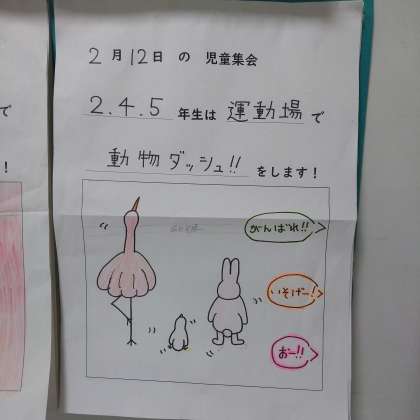 2月12日 の 児童集会
2.4.5 年生は 運動場 で
動物ダッシュ!! をします!
がんばれ!!
いそげー!
おー!!
で
!